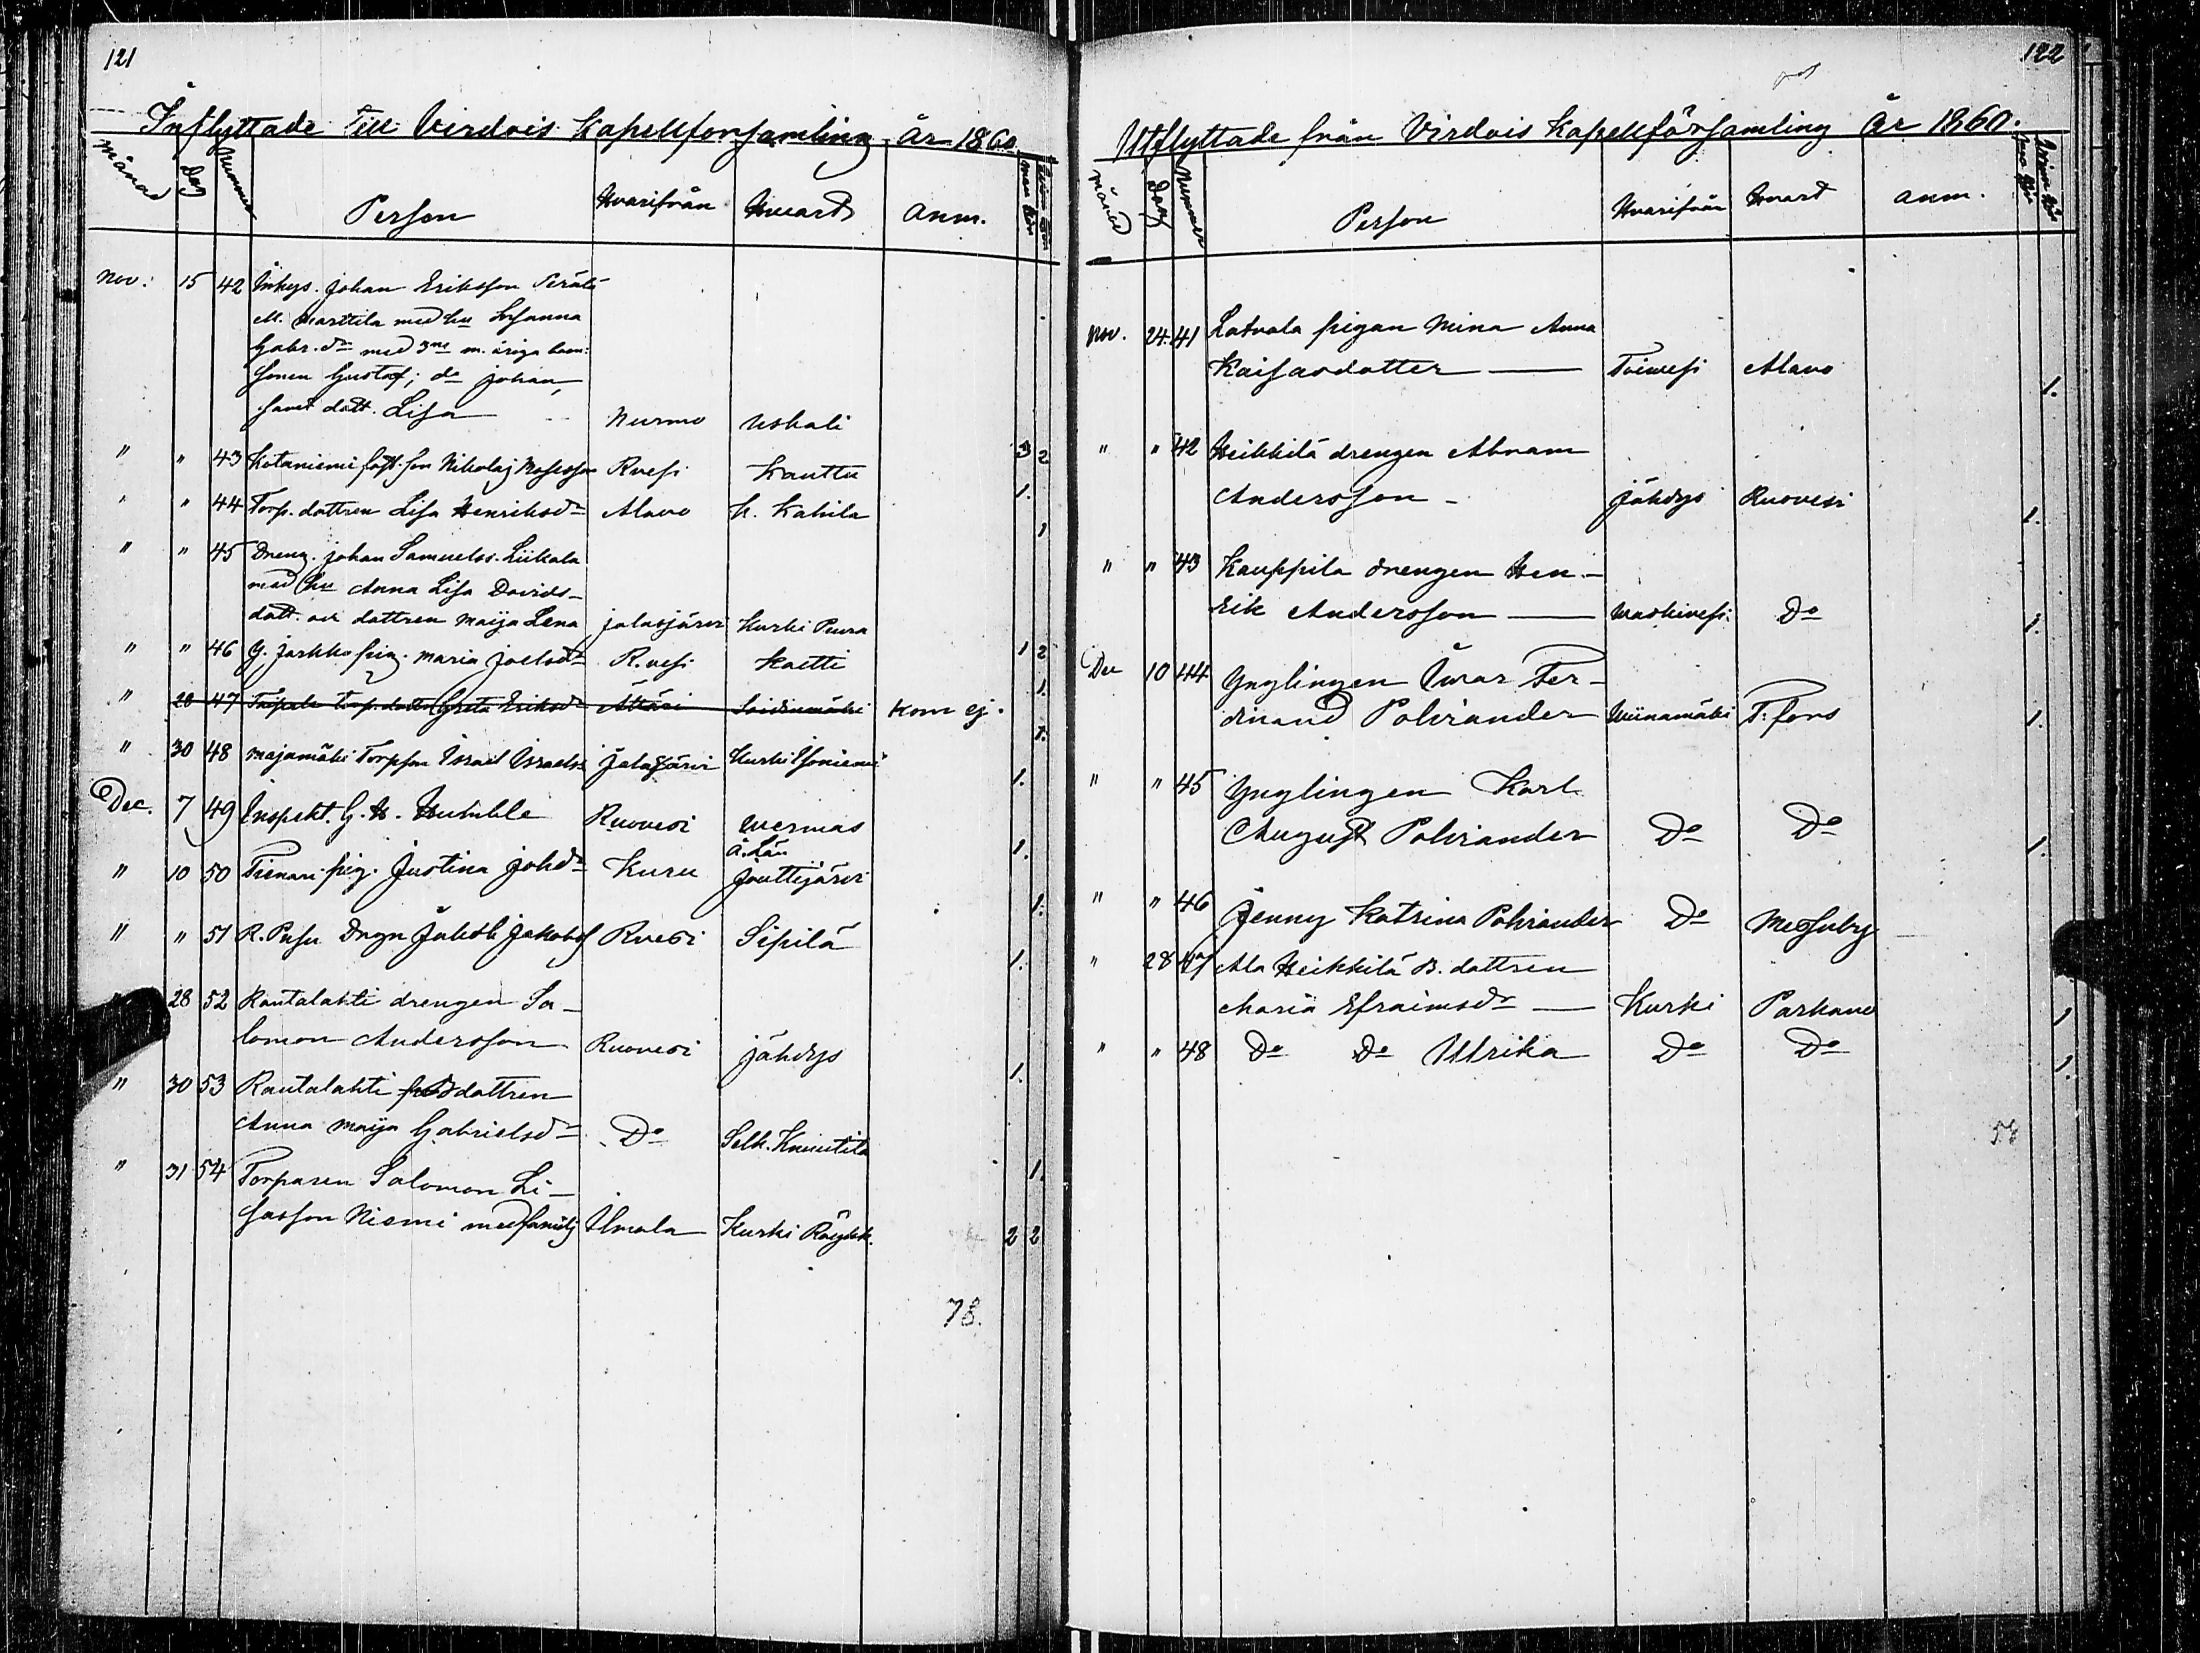 121
Inflyttade Till Virdois Kapellforsamling år 1860.
Månad Dag Nummer Person Hvarifrån Hwart Anm. Man kön Qvin kön
Nov: 15 42 Inhys. Johan Eriksson
M. Marttila med hu Susanna
Gabr. dr med 3ne m. åriga barn:
sonen Gustaf; do Johan,
samt dött. Lisa Nurmo Uskali 3 2
" " 43 Kotaniemi son Nikolaj Mosesson Rvesi Kauttu 1.
" " 44 Torp. dottren Lisa Henriksdr Alavo H. Kahila 1
" " 45 Dreng. Johan Samuelss. Liikala
med hu Anna Lisa Davids-
dott. och dottren Maija Lena Jalasjärvi Kurki Puura 1 2
" " 46 G. Jarkko pig. Maria Joelsdr R.vesi Kaitti 1.
" 28 47 Taipale torp. dottr Greta Eriksdr Ätsäri Soidinmäki Kom ej. 1.
" 30 48 Majamäki Torpson Israel Israelss Jalasjärvi Kurki Isoniemi 1.
Dec. 7 49 Inspekt. G. H. Humble Ruovesi Wermas 1.
" 10 50 pig. Justina Johdr Kuru Jouttijärvi 1.
" " 51 R. Pusu Drgn Jakob Jakobs Rvesi Sipilä 1.
" 28 52 Rautalahti drengen Sa-
lomon Andersson Ruovesi Jähdys 1.
" 30 53 Rautalahti dottren
Anna Maija Gabrielsdr Do Selk. Knuutila 1.
" 31 54 Torparen Salomon Li-
sasson Niemi med familj Ilmola Kurki Röyhk. 2 2
78.
122
Utflyttade från Virdois Kapellförsamling År 1860.
Månad Dag Nummer Person Hvarifrån Hvart Anm.
Nov. 24. 41 Latvala pigan Mina Anna
Kaisasdotter Toivesi Alavo 1.
" " 42 Heikkilä drengen Abram
Andersson - Jähdys Ruovesi 1.
" " 43 Kauppila drengen Hen-
rik Andersson Waskivesi Do 1.
Dec 10 44 Ynglingen Ivar Fer-
dinand Polviander Wiinamäki T:fors 1.
" " 45 Ynglingen Karl
August Polviander Do Do 1.
" " 46 Jenny Katrina Polviander Do Messuby
" 28 47 Ala Heikkilä B. dottren
Maria Efraimsdr Kurki Parkano 1
" " 48 Do Do Ulrika Do Do 1.
58